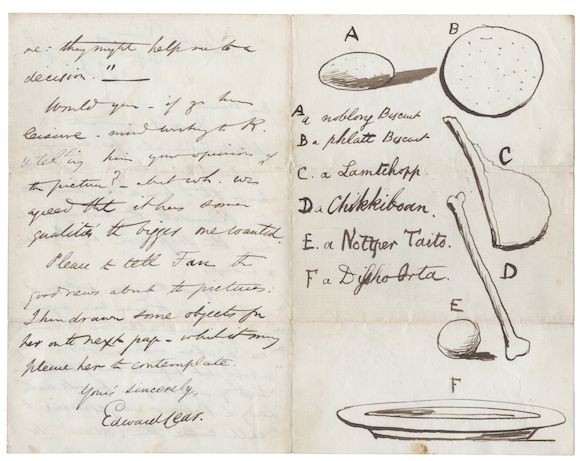 me: they might help me to a
decision."
Would you - if you have
leisure - mind writing to R.
telling him your opinion of
the picture? - about wh. we
agreed that it has some
qualities the bigger one wanted.
Please to tell Fan the
good news about the pictures:
I have drawn some objects for
her on the next page - which it may
please her to contemplate.
Yours sincerely,
Edward Lear.
A
B
A a noblong Biscuit
B a phlatt Biscuit
C. a Lamtchopp.
D a Chikkiboan.
E. a Nottper Taito.
F a Dissho Orta.
C
D
E
F